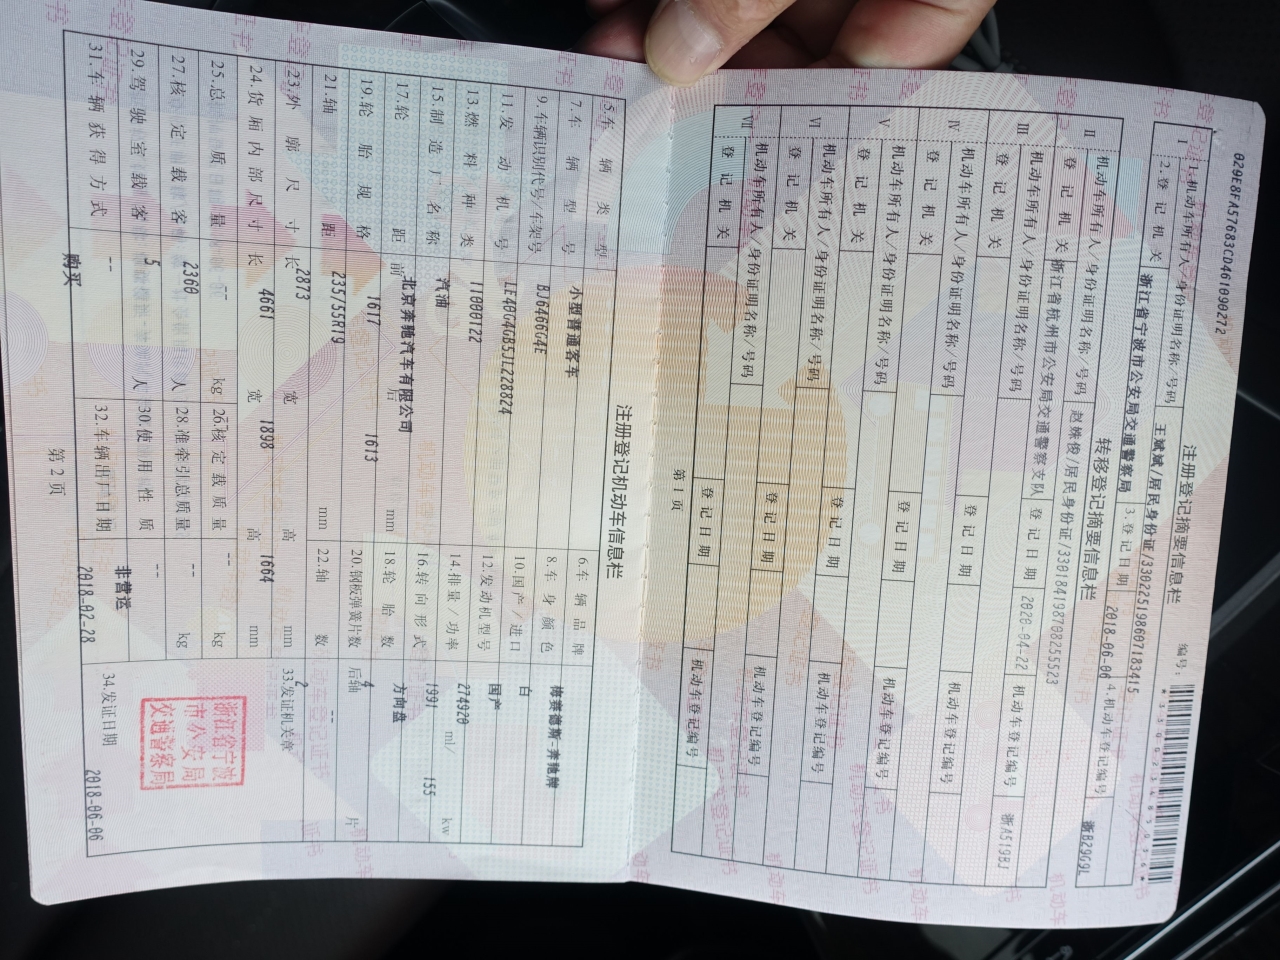 029E8FA57683CD461090272
注册登记摘要信息栏
编号:
I
1.机动车所有人/身份证明名称/号码 王斌斌/居民身份证/330225198607183415
2.登记机关 浙江省宁波市公安局交通警察局 3.登记日期 2018-06-06 4.机动车登记编号 浙B29G9L
转移登记摘要信息栏
II
机动车所有人/身份证明名称/号码 赵姝俊/居民身份证/330184198708255523
登记机关 浙江省杭州市公安局交通警察支队 登记日期 2020-04-22 机动车登记编号 浙A519BJ
III
机动车所有人/身份证明名称/号码
登记机关 登记日期 机动车登记编号
IV
机动车所有人/身份证明名称/号码
登记机关 登记日期 机动车登记编号
V
机动车所有人/身份证明名称/号码
登记机关 登记日期 机动车登记编号
VI
机动车所有人/身份证明名称/号码
登记机关 登记日期 机动车登记编号
VII
机动车所有人/身份证明名称/号码
登记机关 登记日期 机动车登记编号
第1页
注册登记机动车信息栏
5.车辆类型 小型普通客车 6.车辆品牌 梅赛德斯-奔驰牌
7.车辆型号 BJ6466G4E 8.车身颜色 白
9.车辆识别代号/车架号 LE40G4GB5JL228824 10.国产/进口 国产
11.发动机号 11000122 12.发动机型号 274920
13.燃料种类 汽油 14.排量/功率 1991 ml/ 155 kw
15.制造厂名称 北京奔驰汽车有限公司 16.转向形式 方向盘
17.轮距 前 1617 后 1613 mm 18.轮胎数 4
19.轮胎规格 235/55R19 20.钢板弹簧片数 后轴 -- 片
21.轴距 2873 mm 22.轴数 2
23.外廓尺寸 长 4661 宽 1898 高 1664 mm
24.货厢内部尺寸 长 宽 高 mm
25.总质量 2360 kg 26.核定载质量 -- kg
27.核定载客 5 人 28.准牵引总质量 -- kg
29.驾驶室载客 -- 人 30.使用性质 非营运
31.车辆获得方式 购买 32.车辆出厂日期 2018-02-28
33.发证机关章
浙江省宁波
市公安局
交通警察局
34.发证日期 2018-06-06
第2页